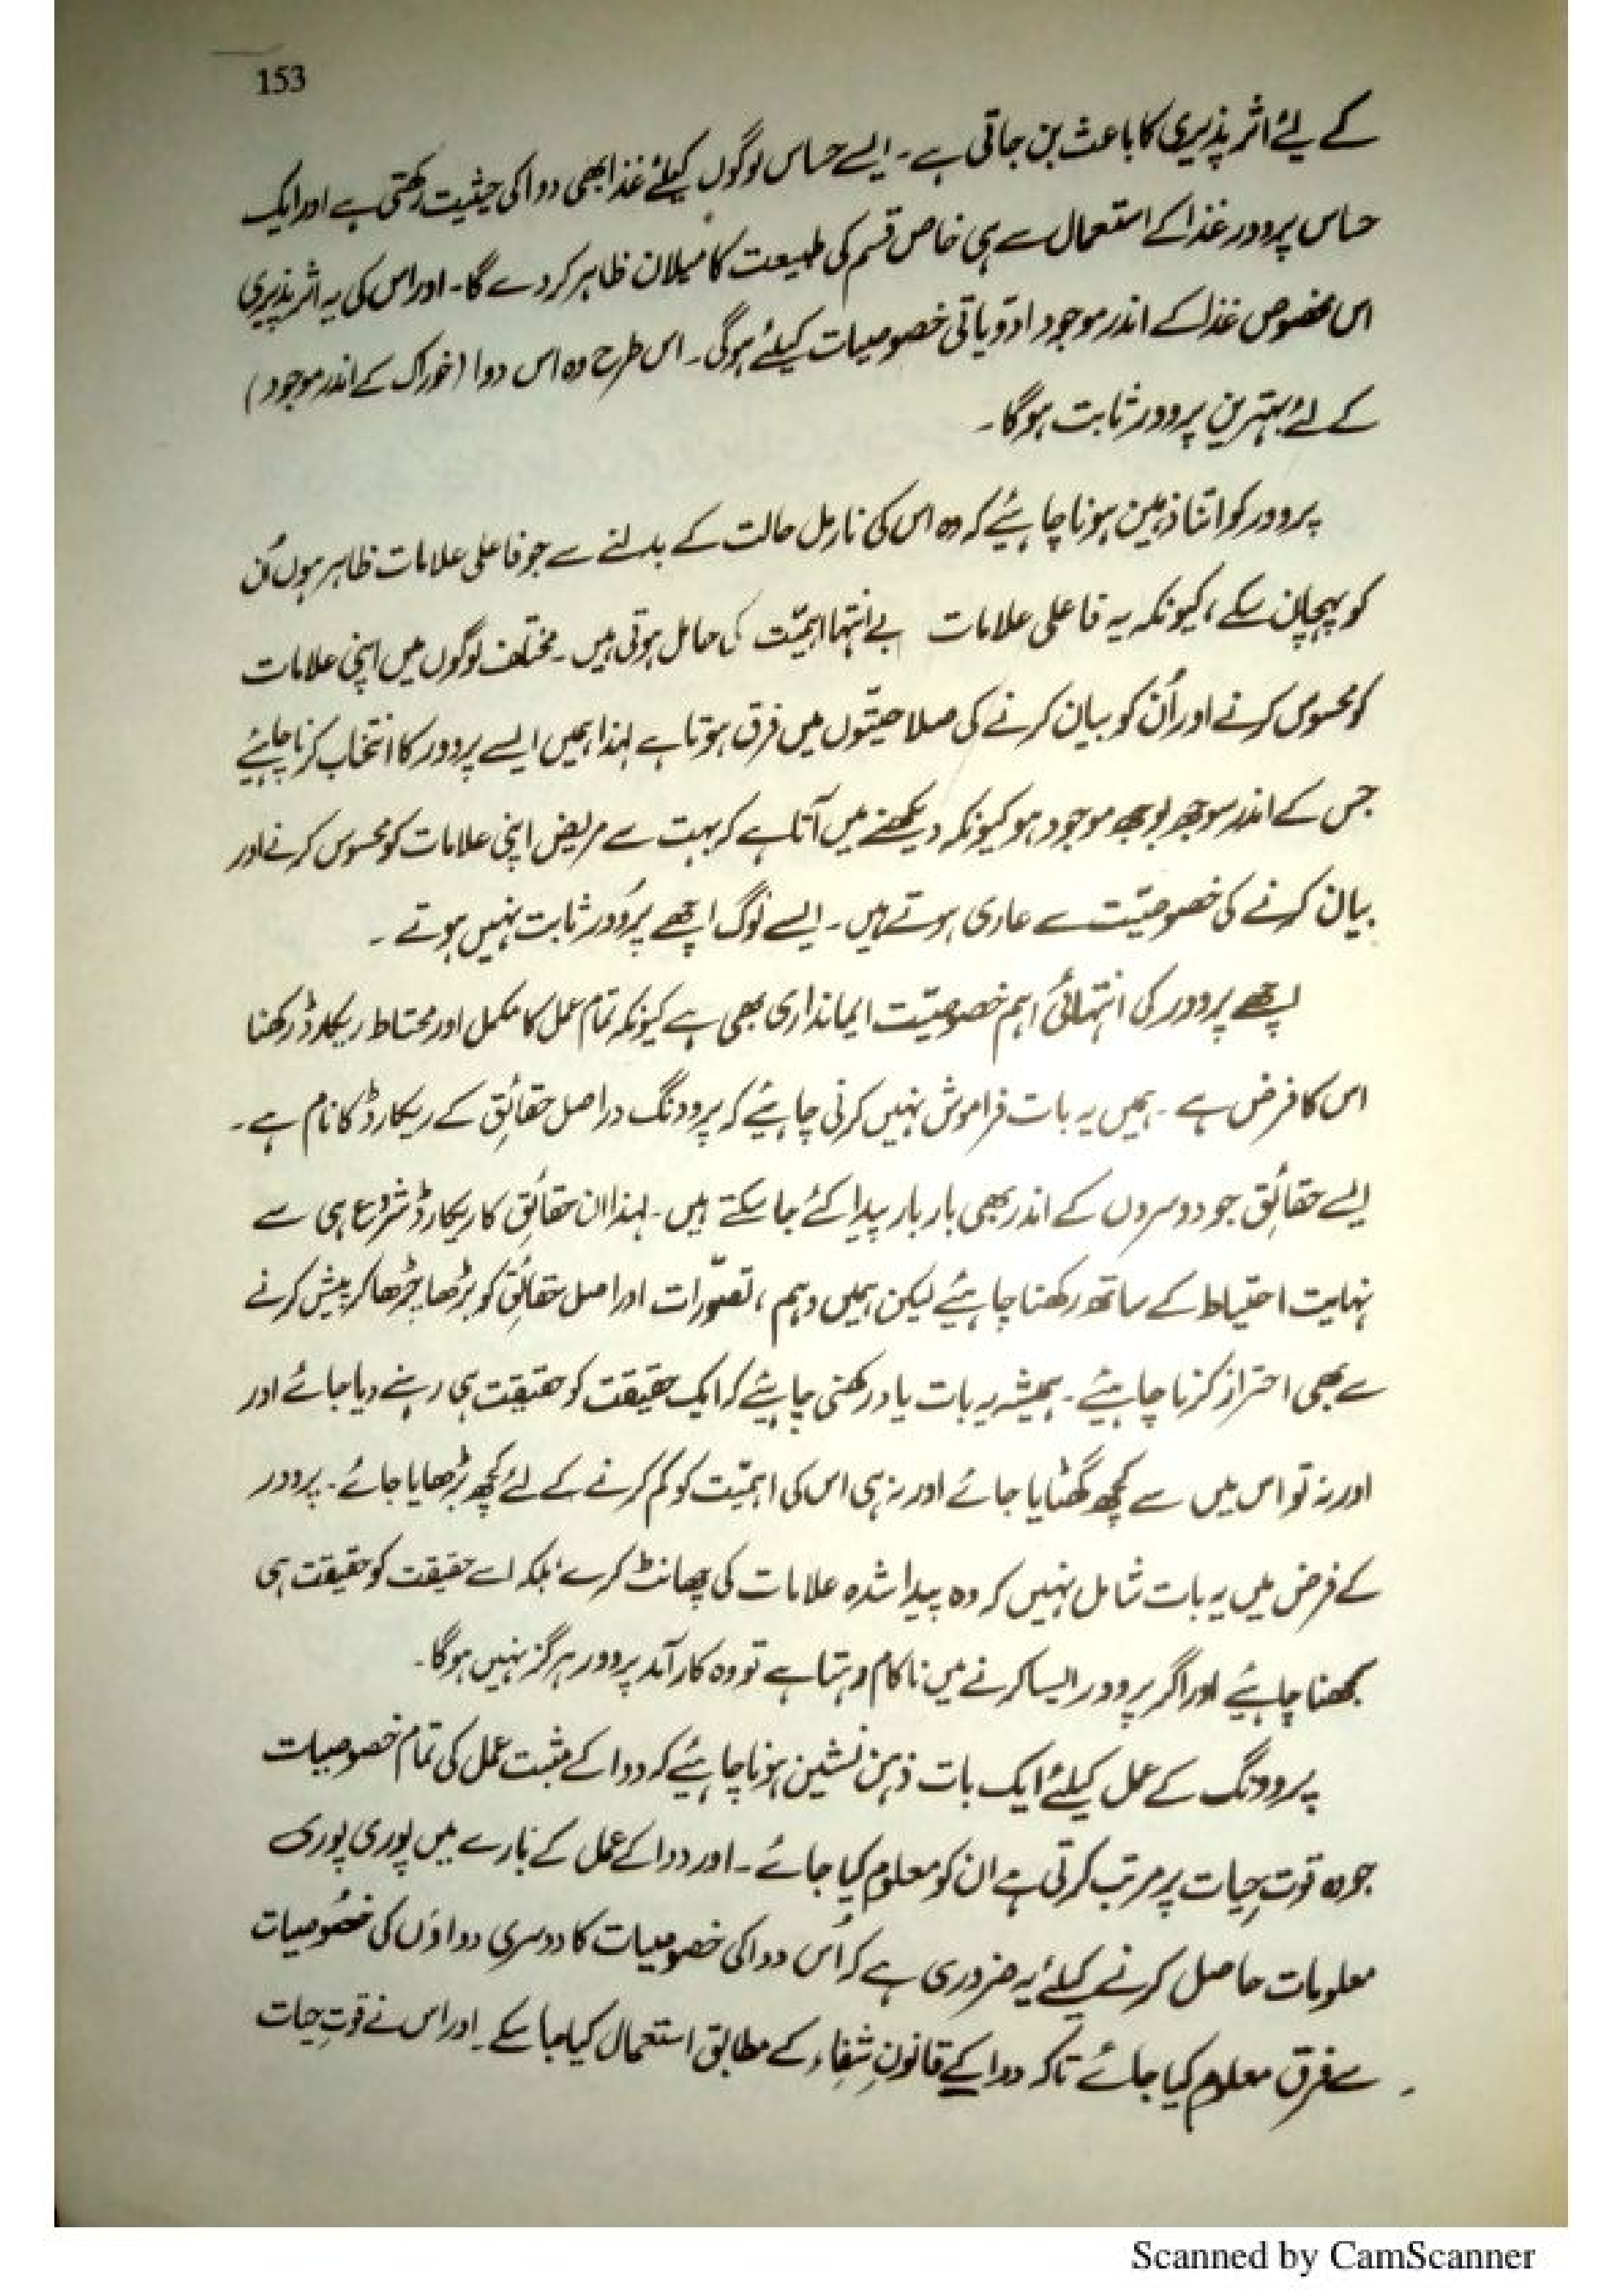 153
کے لئے اثر پذیری کا باعث بن جاتی ہے۔ ایسے حساس لوگوں کیلئے غذا بھی دوا کی حیثیت رکھتی ہے اور ایک
حساس پروور غذا کے استعمال سے ہی خاص قسم کی طبیعت کا میلان ظاہر کر دے گا۔ اور اس کی یہ اثر پذیری
اس مخصوص غذا کے اندر موجود ادویاتی خصوصیات کیلئے ہوگی۔ اس طرح وہ اس دوا (خوراک کے اندر موجود)
کے لئے بہترین پروور ثابت ہوگا۔
پروور کو اتنا ذہین ہونا چاہئیے کہ وہ اس کی نارمل حالت کے بدلنے سے جو فاعلی علامات ظاہر ہوں اُن
کو پہچان سکے، کیونکہ یہ فاعلی علامات بے انتہا اہمیّت کی حامل ہوتی ہیں۔ مختلف لوگوں میں اپنی علامات
کو محسوس کرنے اور اُن کو بیان کرنے کی صلاحیّتوں میں فرق ہوتا ہے لہٰذا ہمیں ایسے پروور کا انتخاب کرنا چاہئیے
جس کے اندر سوجھ بوجھ موجود ہو کیونکہ دیکھنے میں آتا ہے کہ بہت سے مریض اپنی علامات کو محسوس کرنے اور
بیان کرنے کی خصوصیّت سے عاری ہوتے ہیں۔ ایسے لوگ اچھے پروُور ثابت نہیں ہوتے۔
اچھے پروور کی انتہائی اہم خصوصیّت ایمانداری بھی ہے کیونکہ تمام عمل کا مکمل اور محتاط ریکارڈ رکھنا
اس کا فرض ہے۔ ہمیں یہ بات فراموش نہیں کرنی چاہئیے کہ پروونگ دراصل حقائق کے ریکارڈ کا نام ہے۔
ایسے حقائق جو دوسروں کے اندر بھی بار بار پیدا کئے جا سکتے ہیں۔ لہذا ان حقائق کا ریکارڈ شروع ہی سے
نہایت احتیاط کے ساتھ رکھنا چاہئیے لیکن ہمیں وہم، تصوّرات اور اصل حقائق کو بڑھا چڑھا کر پیش کرنے
سے بھی احتراز کرنا چاہئیے۔ ہمیشہ یہ بات یاد رکھنی چاہئیے کہ ایک حقیقت کو حقیقت ہی رہنے دیا جائے اور
اور نہ تو اس میں سے کچھ گھٹایا جائے اور نہ ہی اس کی اہمیّت کو کم کرنے کے لئے کچھ بڑھایا جائے۔ پروور
کے فرض میں یہ بات شامل نہیں کہ وہ پیدا شدہ علامات کی چھانٹ کرے بلکہ اسے حقیقت کو حقیقت ہی
سمجھنا چاہئیے اور اگر پروور ایسا کرنے میں ناکام رہتا ہے تو وہ کارآمد پروور ہرگز نہیں ہوگا۔
پروونگ کے عمل کیلئے ایک بات ذہن نشین ہونا چاہئیے کہ دوا کے مثبت عمل کی تمام خصوصیات
جو وہ قوتِ حیات پر مرتب کرتی ہے ان کو معلوم کیا جائے۔ اور دوا کے عمل کے بارے میں پوری پوری
معلومات حاصل کرنے کیلئے یہ ضروری ہے کہ اُس دوا کی خصوصیات کا دوسری دواؤں کی خصُوصیات
سے فرق معلوم کیا جائے تاکہ دوا کے قانونِ شفاء کے مطابق استعمال کیا جا سکے۔ اور اس نے قوتِ حیات
Scanned by CamScanner